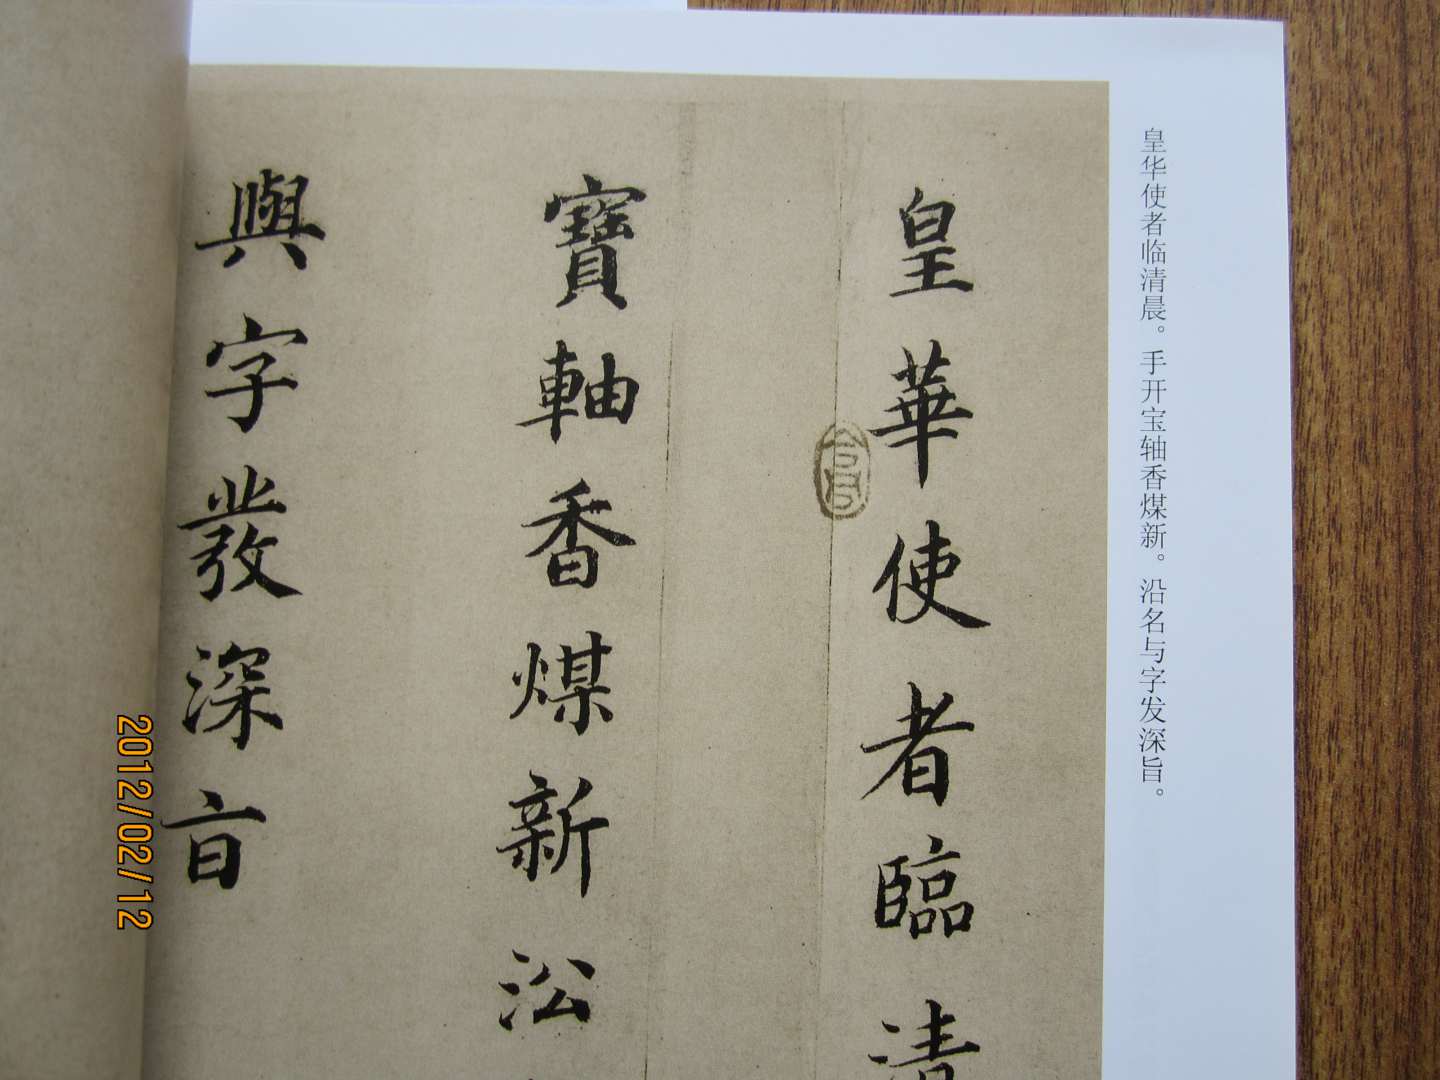 皇华使者临清晨。手开宝轴香煤新。沿名与字发深旨。
皇華使者臨清
寶軸香煤新沿
與字發深旨
2012/02/12